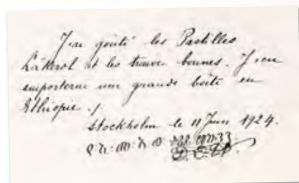 J'ai goûté les Pastilles
Läkerol et les trouve bonnes. J'en
emporterai une grande boîte en
Ethiopie ./.
Stockholm le 11 Juin 1924.